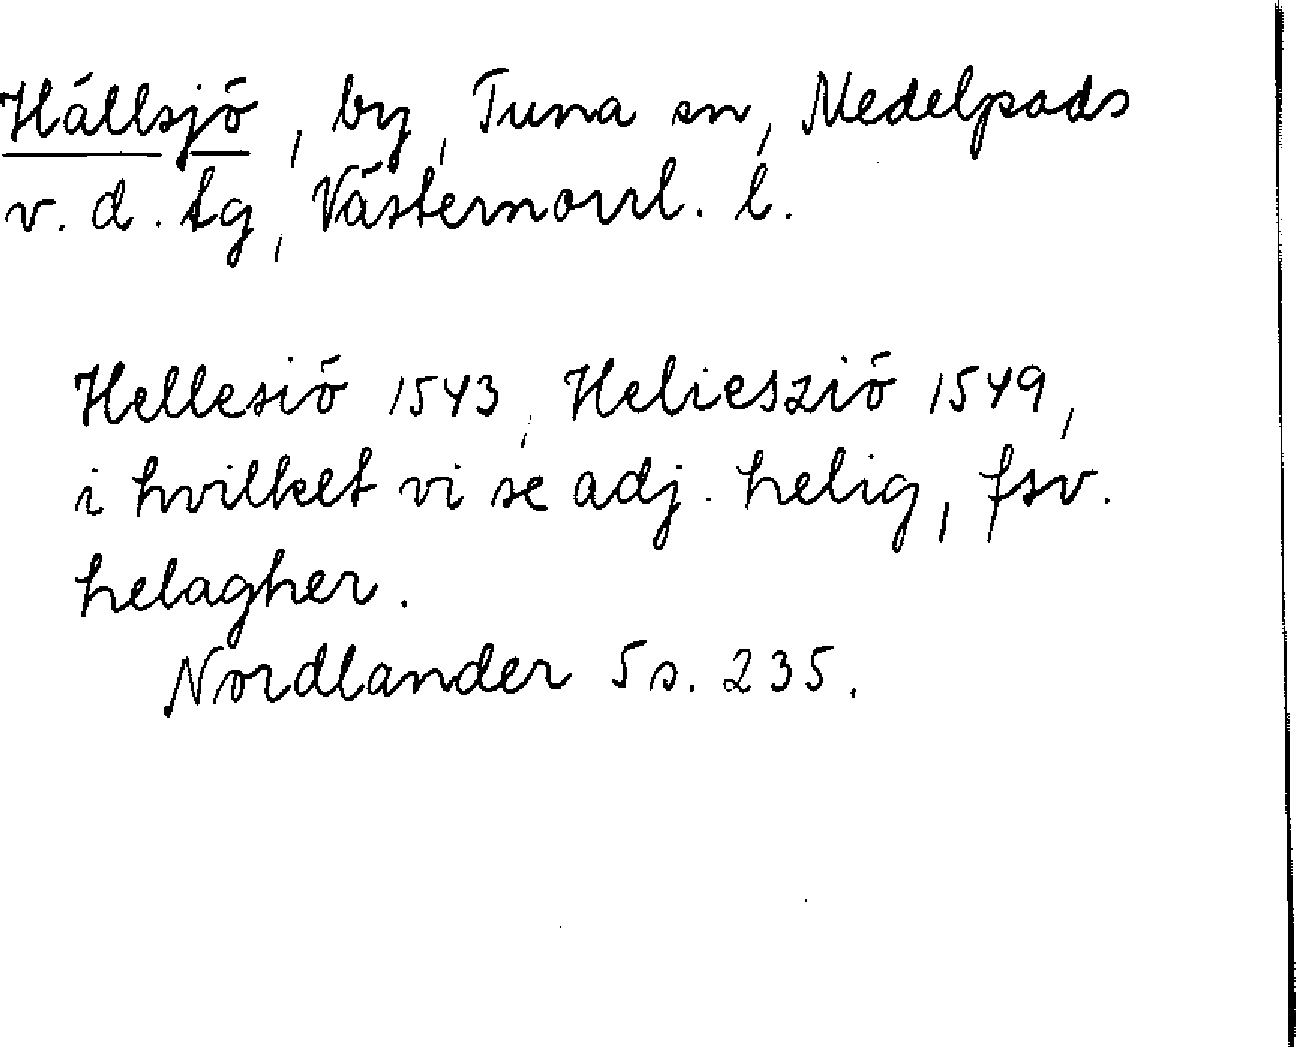 Hällsjö, by, Tuna sn, Medelpads
v. d. tg, Västernorrl. l.
Hellesiö 1543, Heliesziö 1549,
i hvilket vi se adj. helig, fsv.
helagher.
Nordlander 5 s. 235.